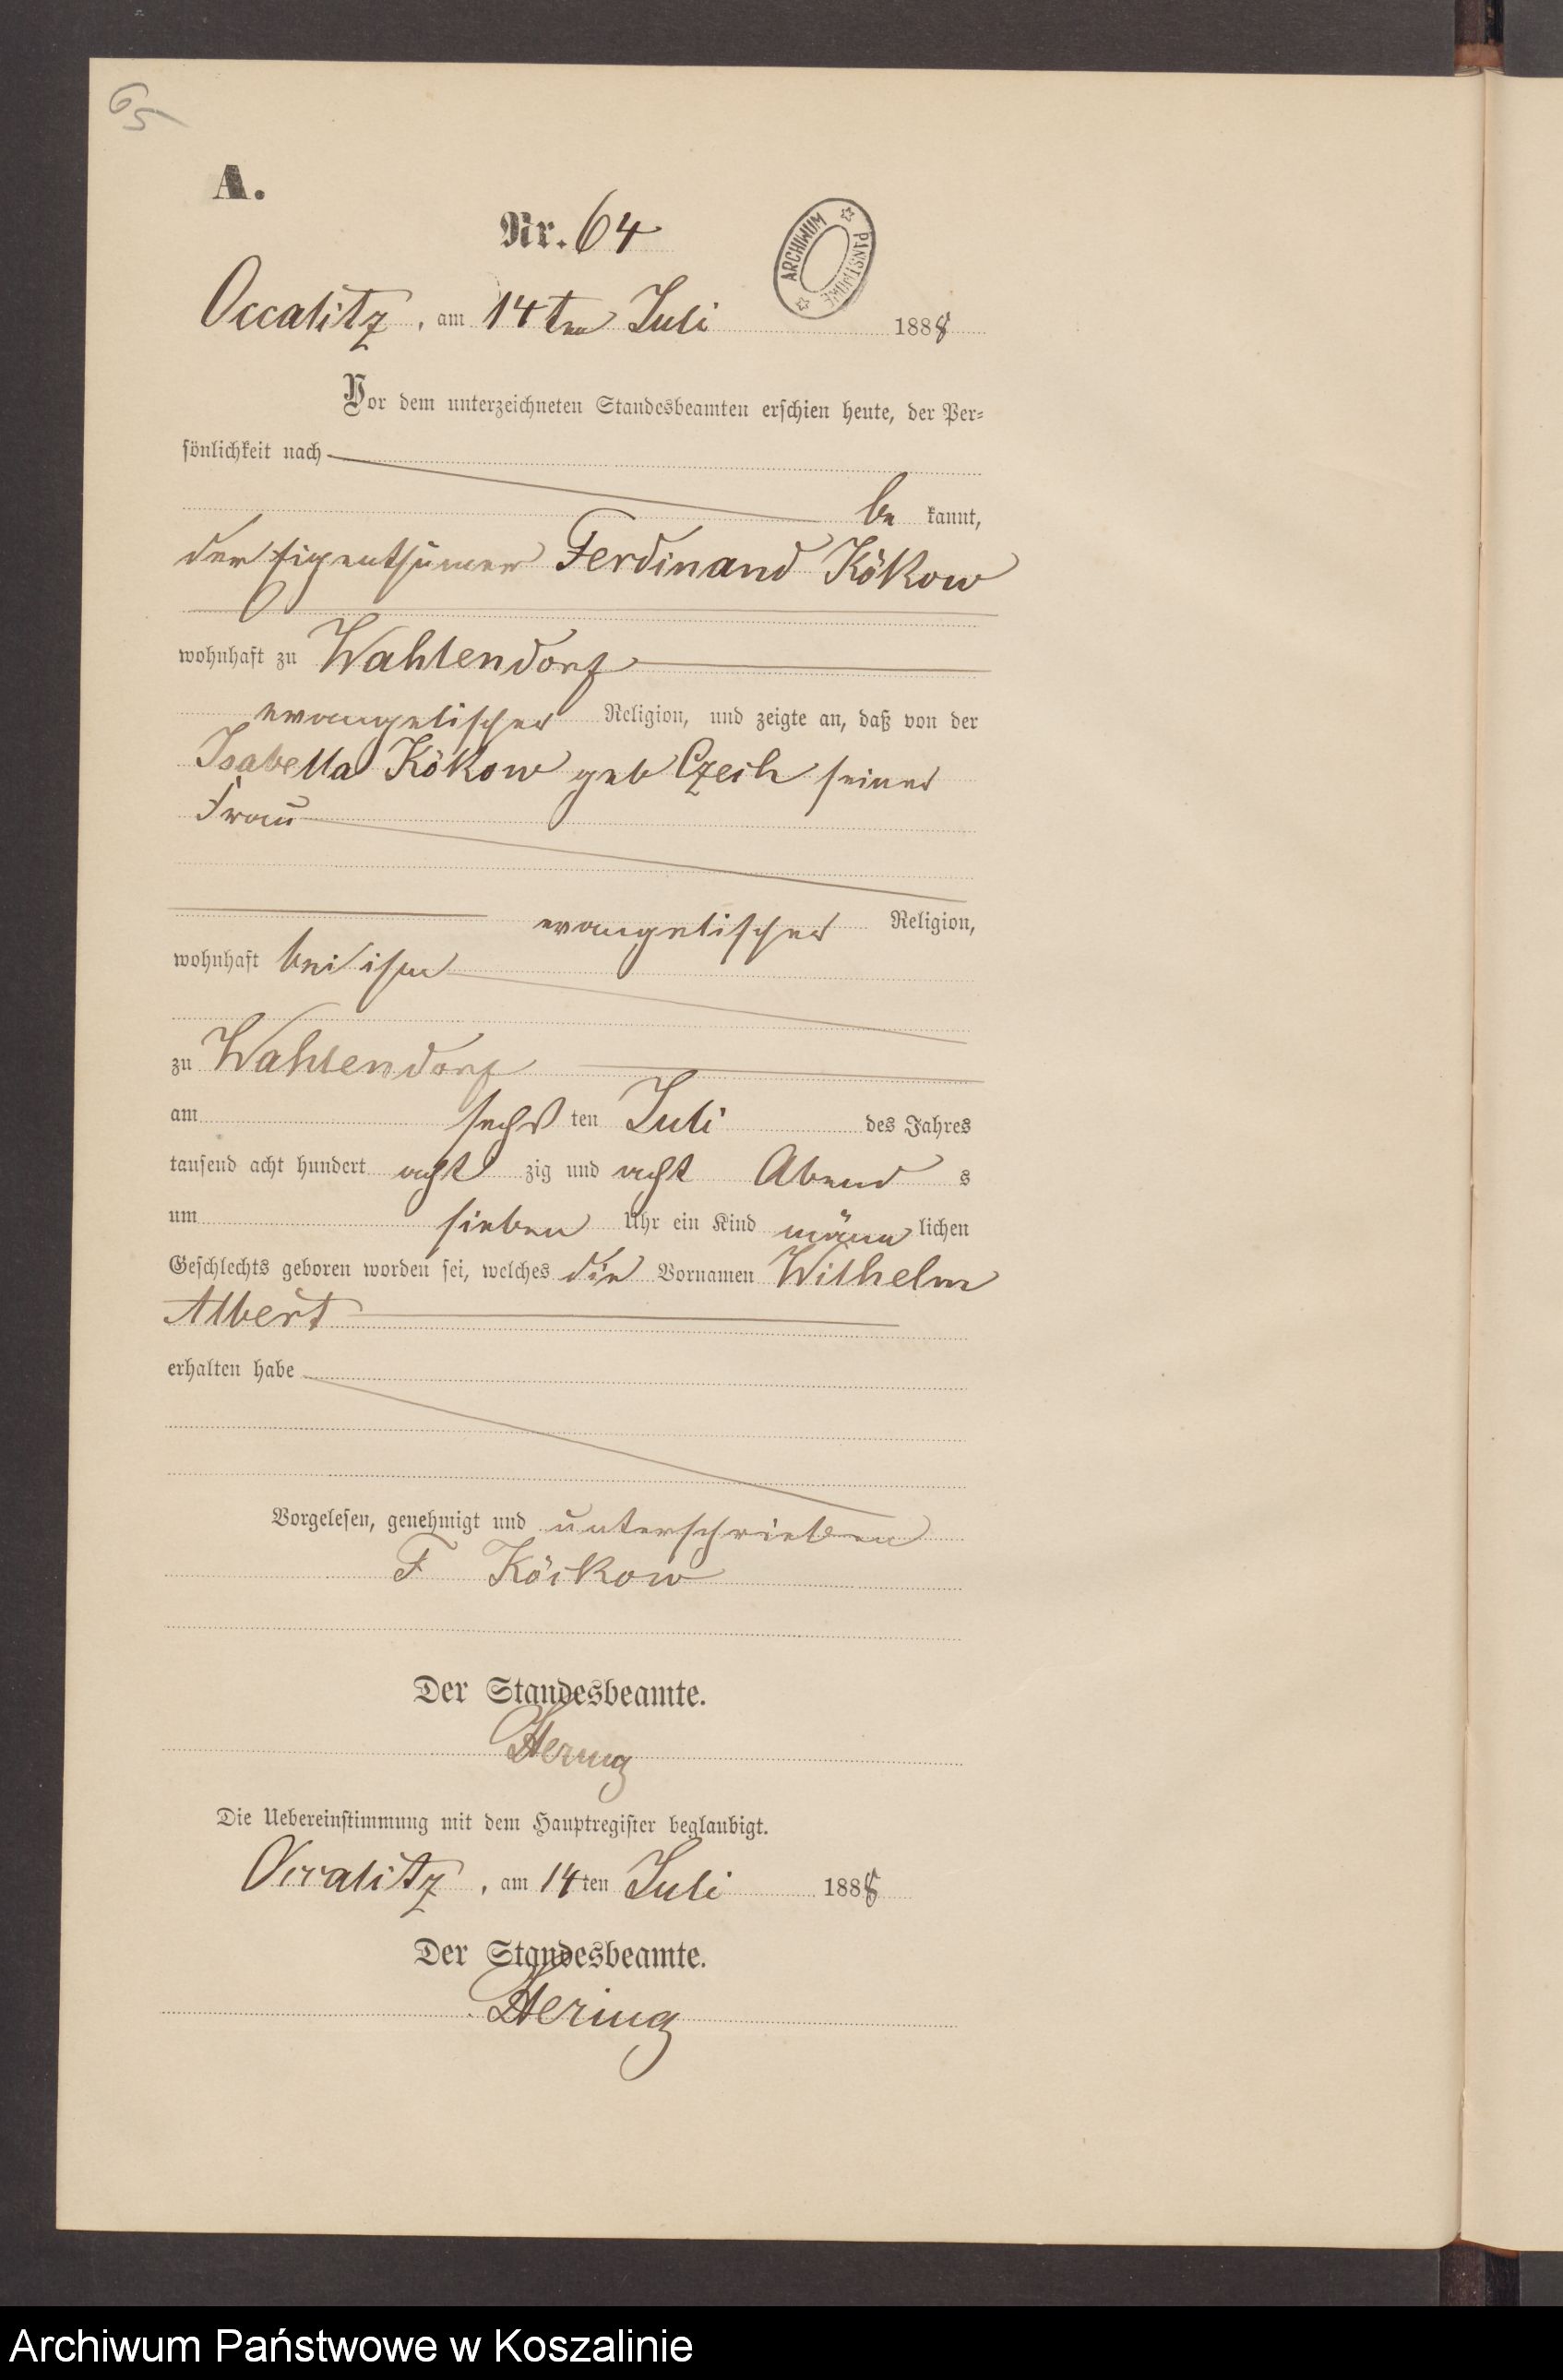 65
A.
Nr. 64
ARCHIWUM PAŃSTWOWE
Occalitz, am 14ten Juli 1888
Vor dem unterzeichneten Standesbeamten erschien heute, der Per=
sönlichkeit nach
be kannt,
der Eigenthümer Ferdinand Kökow
wohnhaft zu Wahlendorf
evangelischer Religion, und zeigte an, daß von der
Isabella Kökow geb Czech seiner
Frau
evangelischer Religion,
wohnhaft bei ihm
zu Wahlendorf
am sechsten Juli des Jahres
tausend acht hundert achtzig und acht Abends
um sieben Uhr ein Kind männlichen
Geschlechts geboren worden sei, welches die Vornamen Wilhelm
Albert
erhalten habe
Vorgelesen, genehmigt und unterschrieben
F Köckow
Der Standesbeamte.
Hering
Die Uebereinstimmung mit dem Hauptregister beglaubigt.
Occalitz, am 14ten Juli 1888
Der Standesbeamte.
Hering
Archiwum Państwowe w Koszalinie